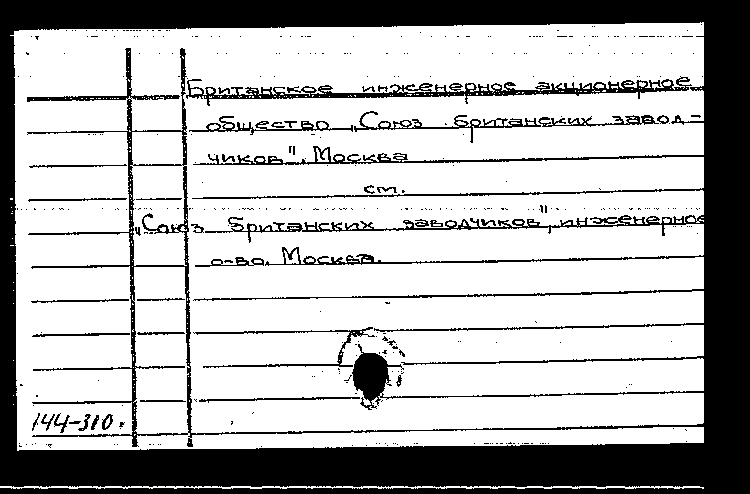 Британское инженерное акционерное
общество „Союз британских завод-
чиков". Москва
см.
„Союз британских заводчиков", инженерное
о-во. Москва.
144-310.